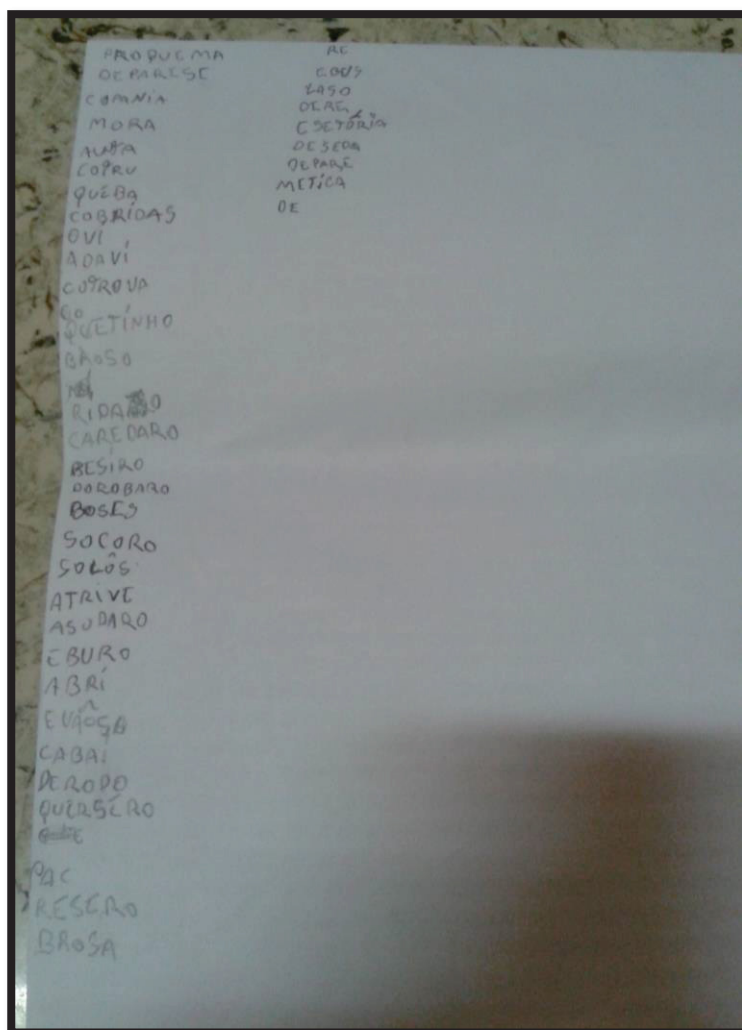 PROQUEMA
DEPARESE
COMNIA
MORA
COPRU
QUEBA
COBRIDAS
OVI
ADAVÍ
CO
QUETÍNHO
BROSO
CAREDARO
BESIRO
DOROBARO
BOSES
SOCORO
SOLÔS
ATRIVE
ASUDARO
EBURO
ABRÍ
CABAI
DERODO
QUERSERO
RESERO
BROSA
RE
LASO
DERE
ESETÓRIA
DESEDA
DEPARE
METICA
DE